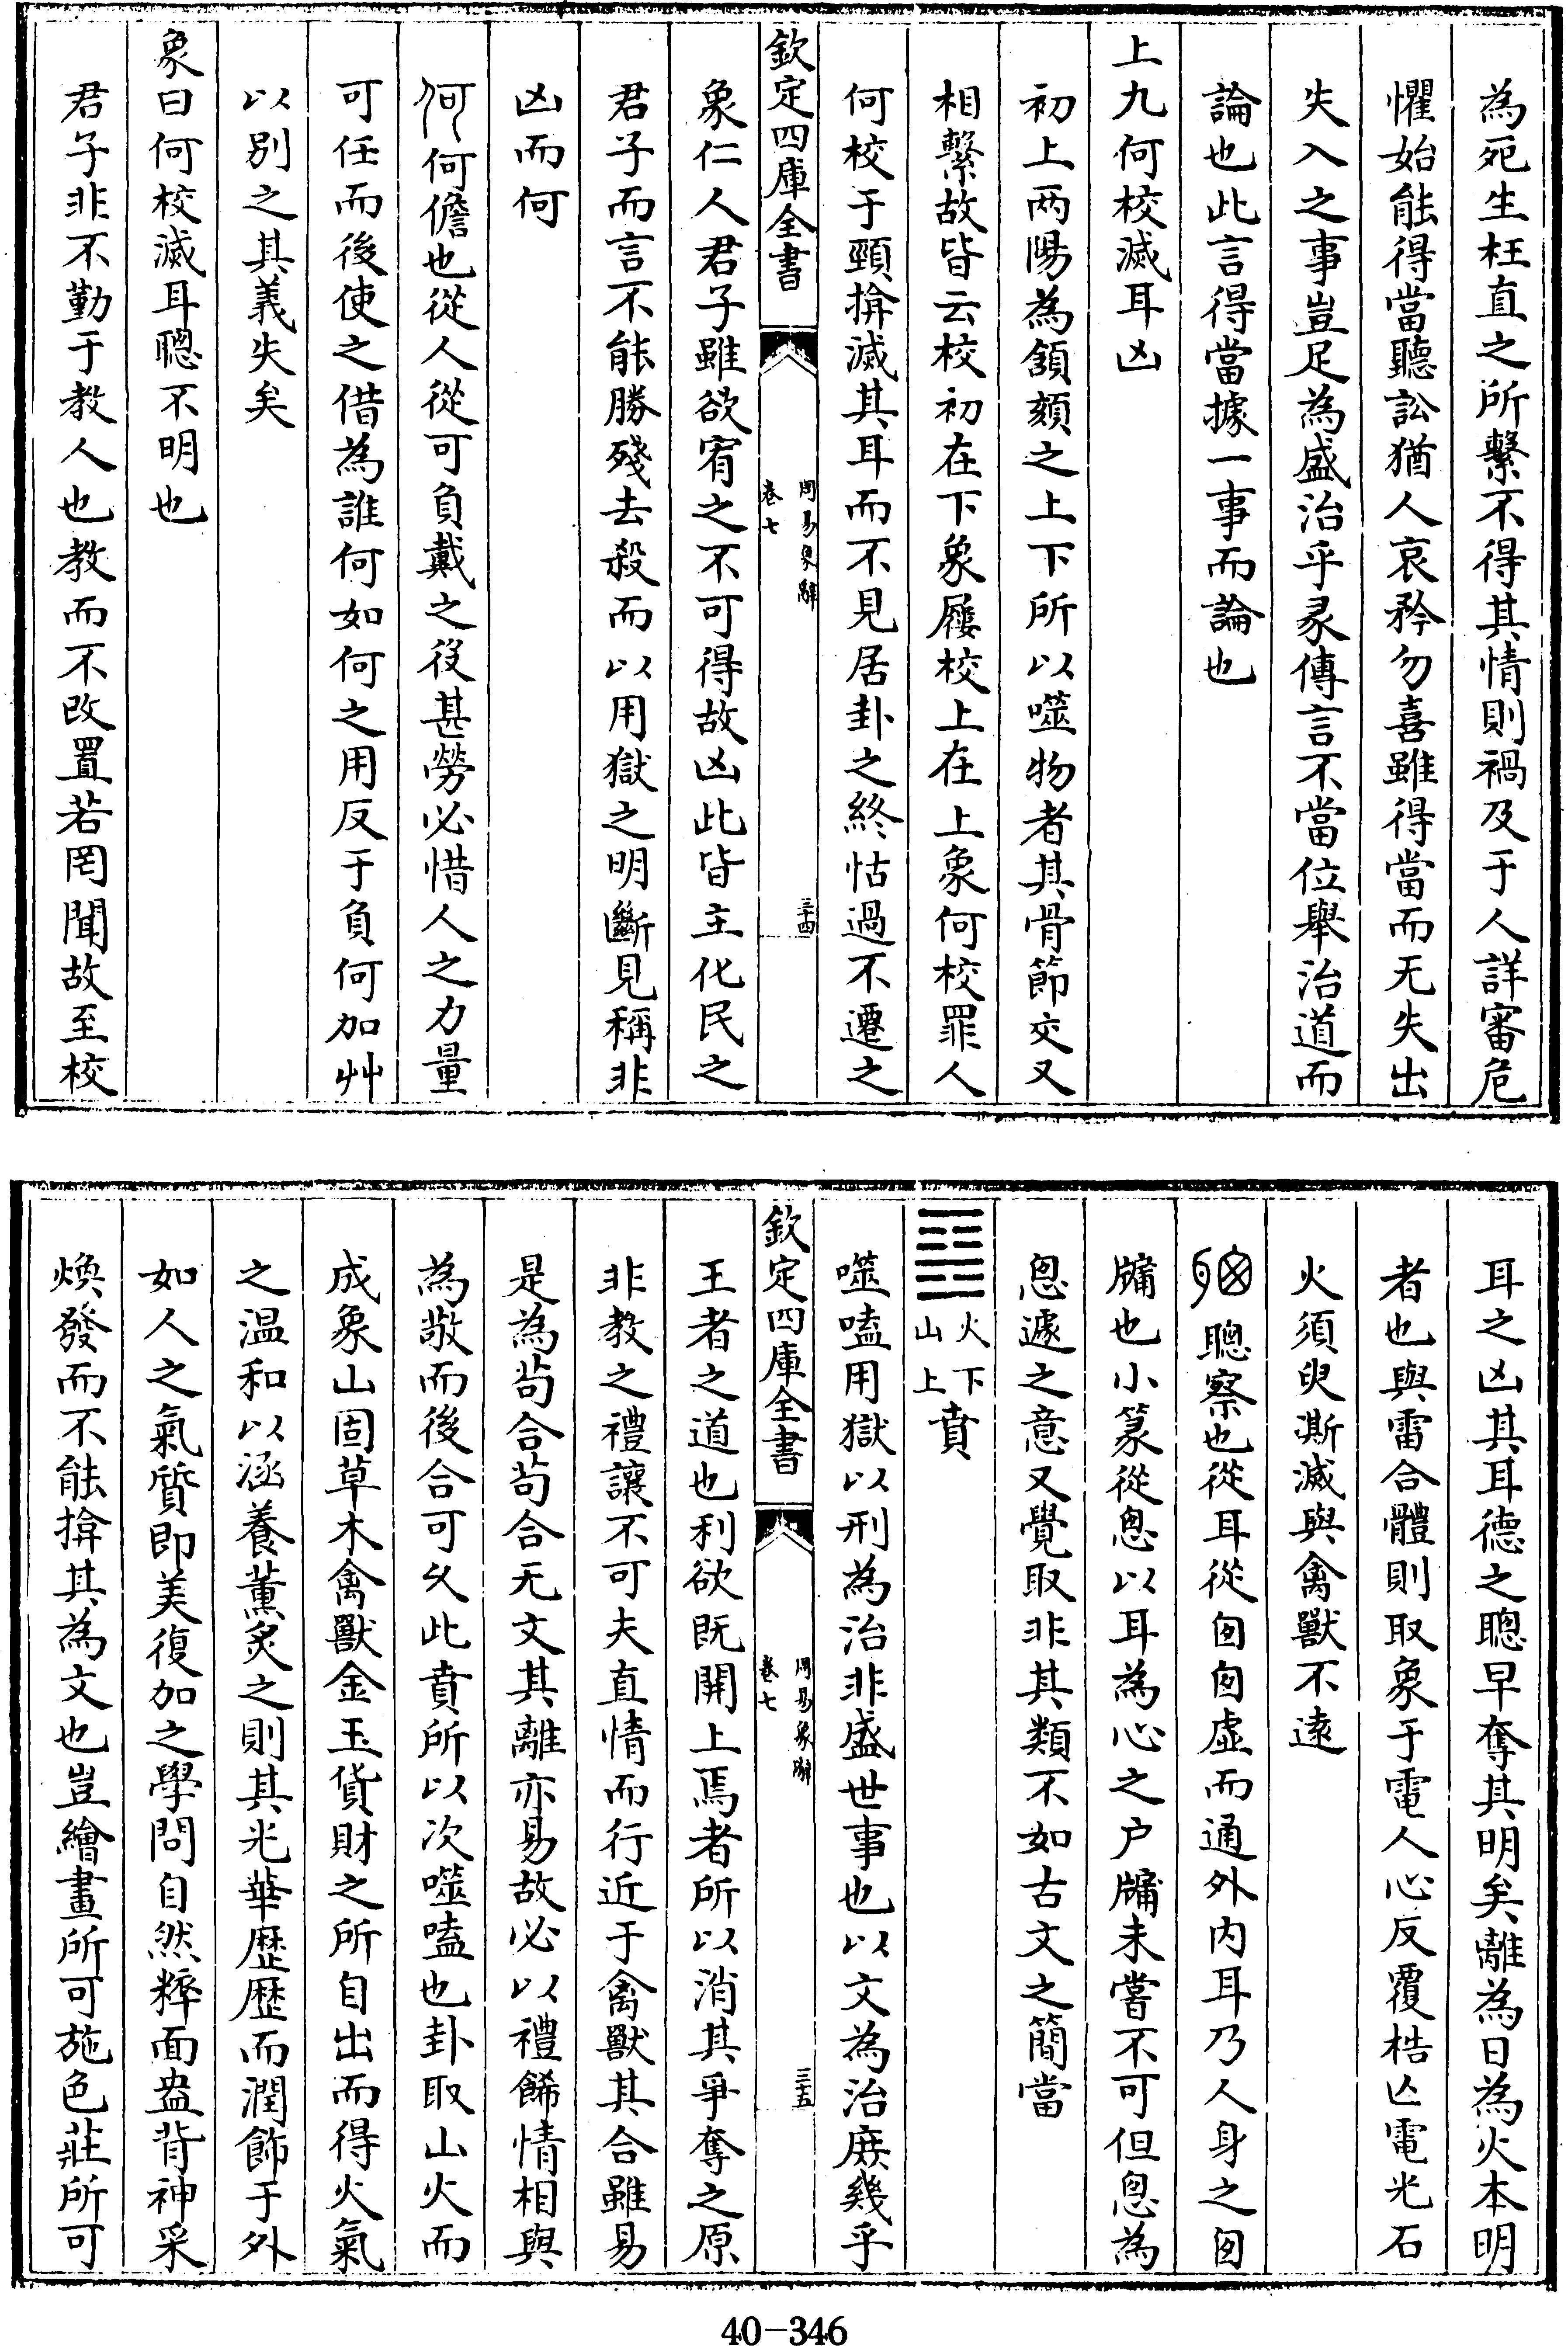 為死生枉直之所繫不得其情則禍及于人詳審危
懼始能得當聽訟猶人哀矜勿喜雖得當而无失出
失入之事豈足為盛治乎彖傳言不當位舉治道而
論也此言得當據一事而論也
上九何校滅耳凶
初上兩陽為頷頰之上下所以噬物者其骨節交又
相繫故皆云校初在下象屨校上在上象何校罪人
何校于頸揜滅其耳而不見居卦之終怙過不遷之
欽定四庫全書
周易象辭
卷七
三十四
象仁人君子雖欲宥之不可得故凶此皆主化民之
君子而言不能勝殘去殺而以用獄之明斷見稱非
凶而何
何儋也從人從可負戴之役甚勞必惜人之力量
可任而後使之借為誰何如何之用反于負何加艸
以別之其義失矣
象曰何校滅耳聰不明也
君子非不勤于教人也教而不改置若罔聞故至校
耳之凶其耳德之聰早奪其明矣離為日為火本明
者也與雷合體則取象于電人心反覆梏亾電光石
火須臾澌滅與禽獸不遠
聰察也從耳從囱囱虛而通外內耳乃人身之囱
牖也小篆從悤以耳為心之户牖未嘗不可但悤為
悤遽之意又覺取非其類不如古文之簡當
䷕火下山上賁
噬嗑用獄以刑為治非盛世事也以文為治庶幾乎
欽定四庫全書
周易象辭
卷七
三十五
王者之道也利欲既開上焉者所以消其爭奪之原
非教之禮讓不可夫直情而行近于禽獸其合雖易
是為茍合茍合无文其離亦易故必以禮餙情相與
為敬而後合可久此賁所以次噬嗑也卦取山火而
成象山固草木禽獸金玉貨財之所自出而得火氣
之温和以涵養薰炙之則其光華歷歷而潤飾于外
如人之氣質即美復加之學問自然粹面盎背神采
煥發而不能揜其為文也豈繪畫所可施色莊所可
40-346